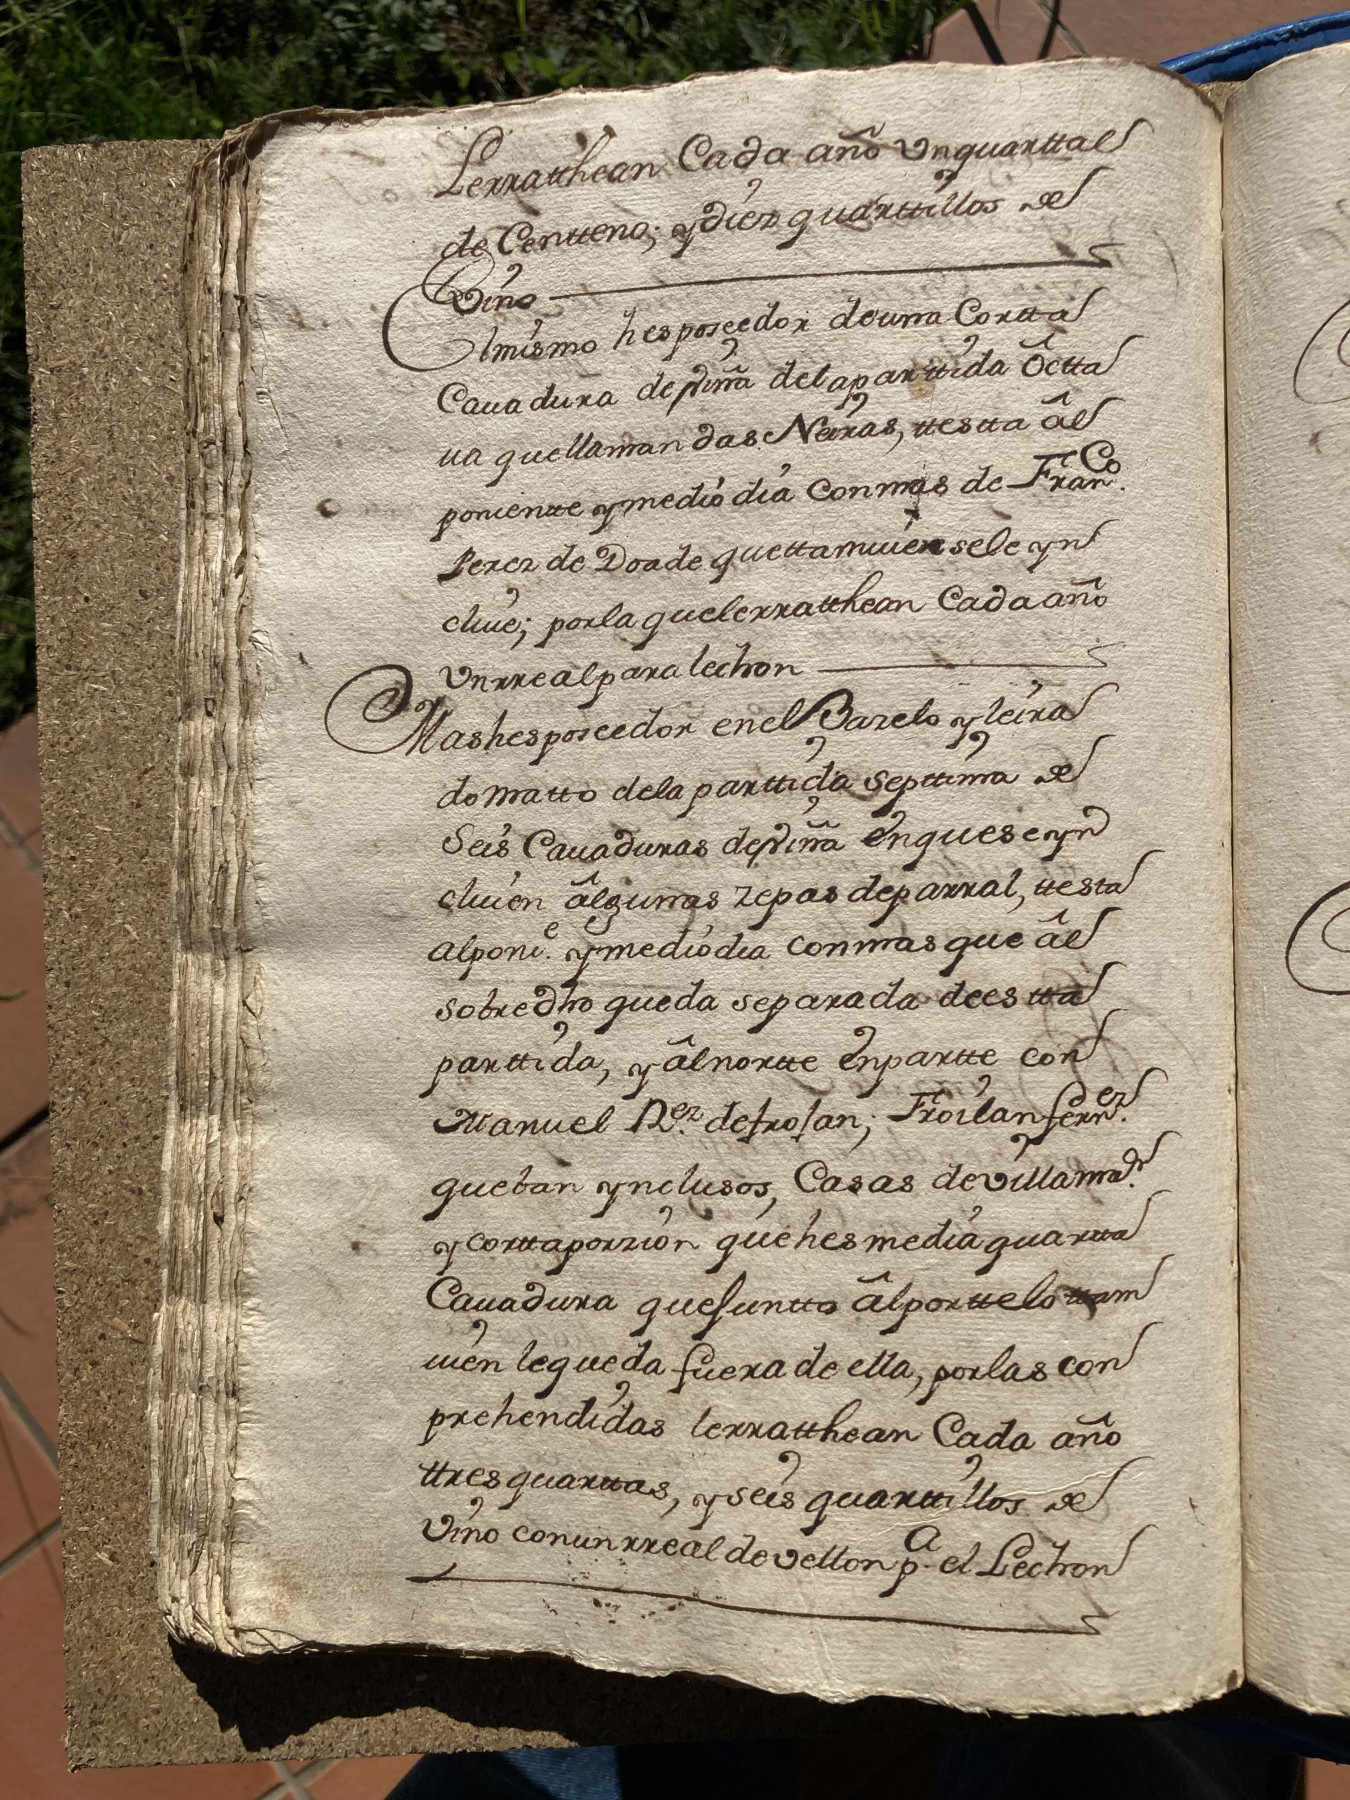 Lerratthean Cada año Vnquarttal
de Centteno; y diez quarttillos de
Vino
El mismo hes poseedor de una Cortta
Cauadura de viña de la parttida Octta
ua que llaman das Neiras, ttestta âl
poniente y medio dia con mas de Fran.co
Perez de Doade que ttamuien se le yn
cluie; por la que lerratthean Cada año
Vn rreal para lechon
Mas hes poseedor en el Bazelo y leira
do matto de la parttida septtima de
Seis Cauaduras de viña en que se yn
cluien âlgunas zepas de parral, ttesta
al poni.e y medio dia con mas que âl
sobredho queda separada de estta
parttida, y âl nortte en partte con
Manuel Rez. de frojan; Froilan fernez.
queban ynclusos, Casas de villama.r
y cortta porzion que hes media quartta
Cauadura que juntto âl porttelo ttam
uien le queda fuera de ella, por las con
prehendidas lerratthean Cada año
ttres quarttas, y seis quarttillos de
Vino con un rreal de vellon p.a el Lechon